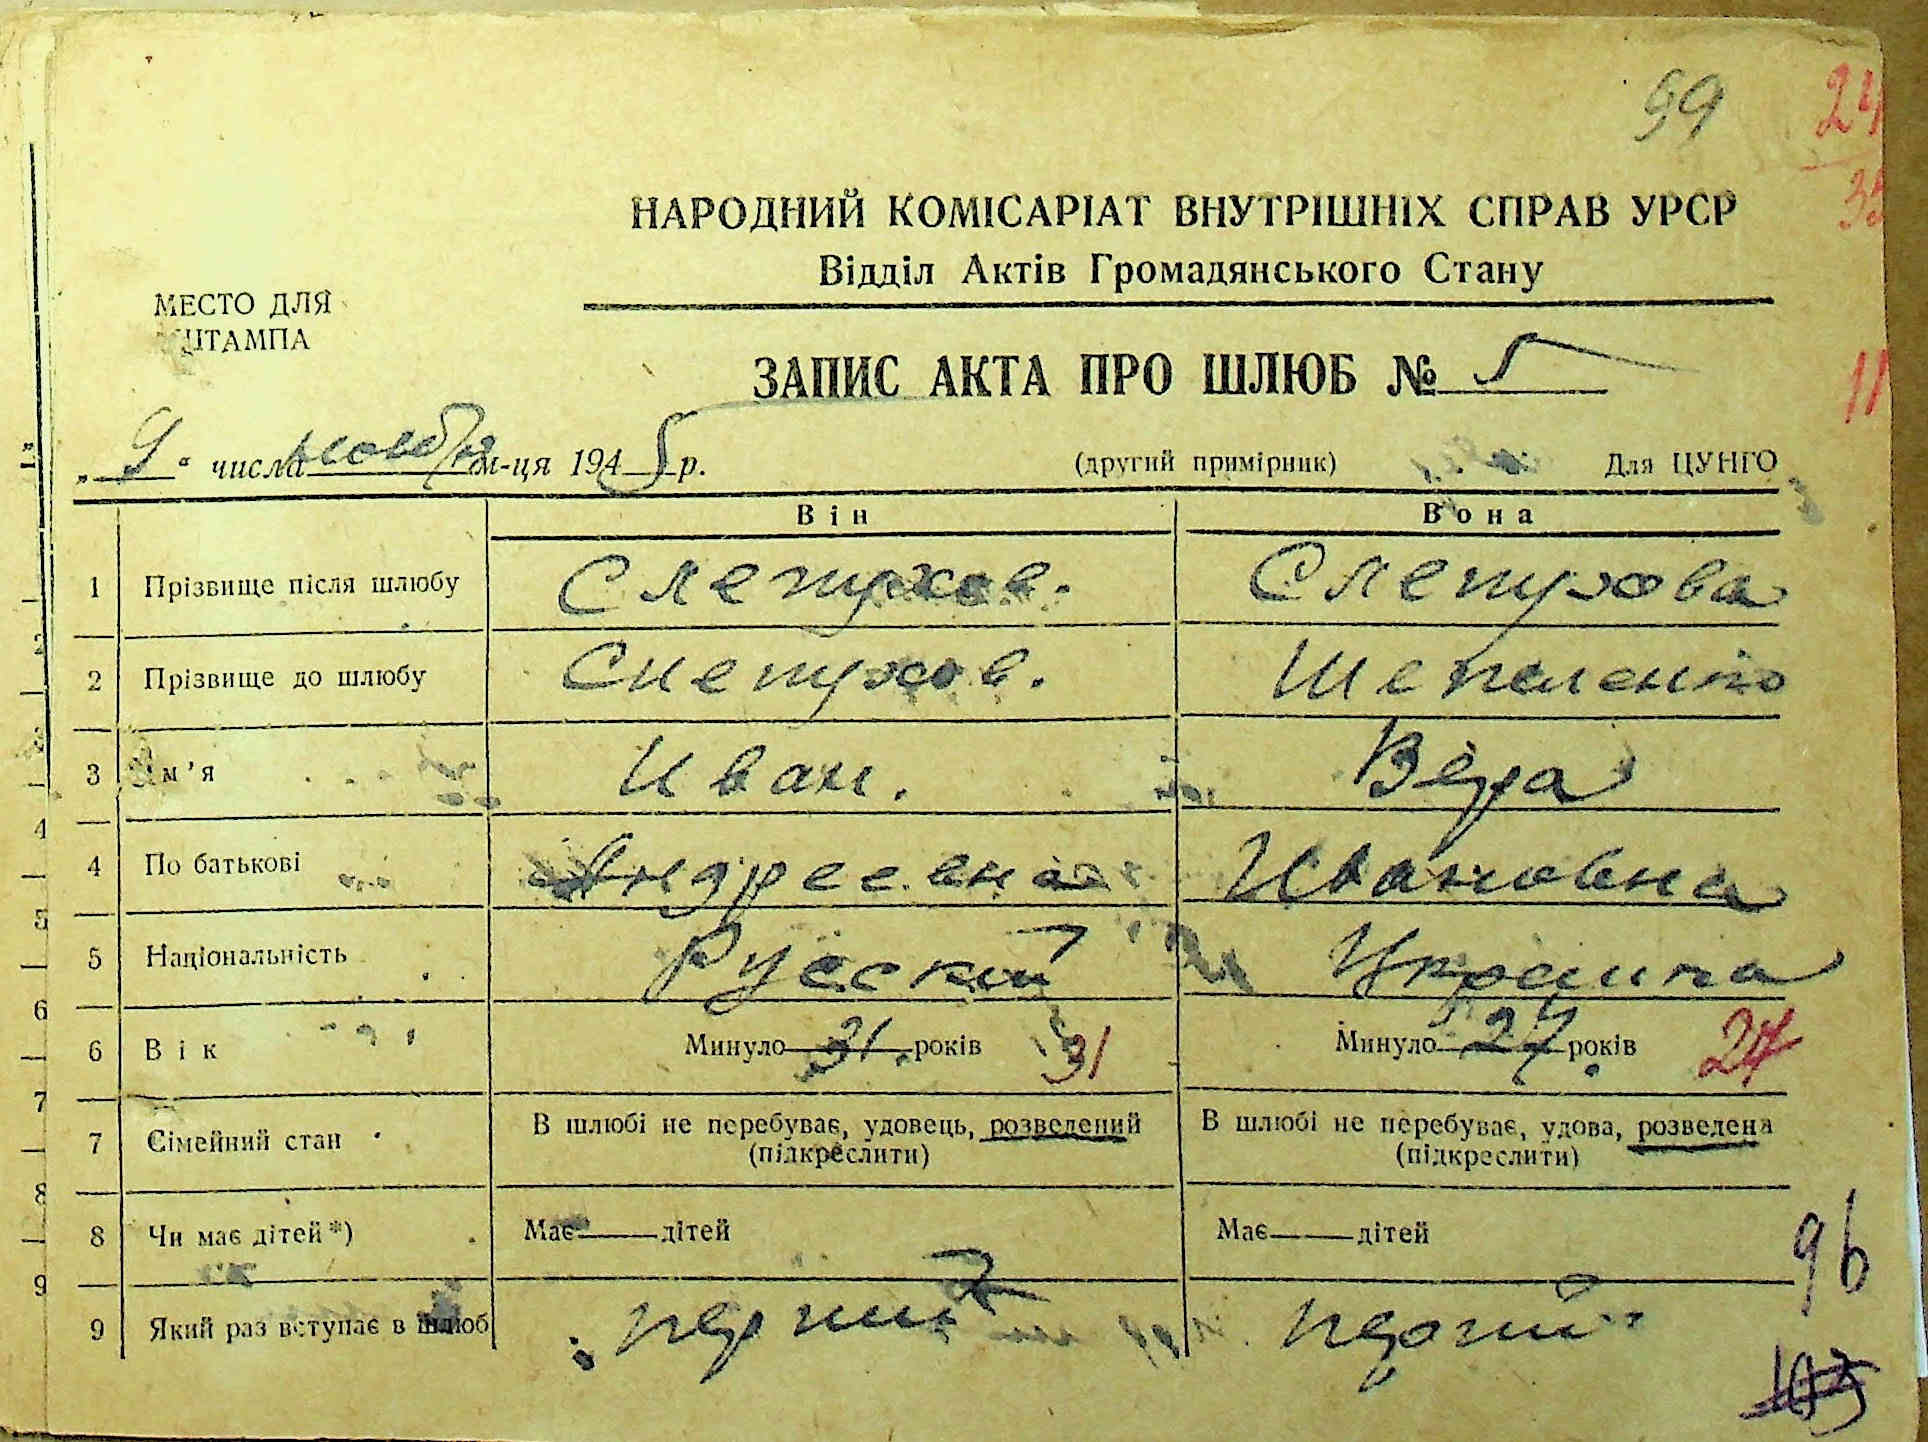 99
24
35
НАРОДНИЙ КОМІСАРІАТ ВНУТРІШНІХ СПРАВ УРСР
Відділ Актів Громадянського Стану
МЕСТО ДЛЯ
ШТАМПА
ЗАПИС АКТА ПРО ШЛЮБ № 5
11
„9" числа ноября м-ця 1945 р. (другий примірник) Для ЦУНГО
Він Вона
1 Прізвище після шлюбу Слепухов. Слепухова
2 Прізвище до шлюбу Слепухов. Шепеленко
3 Ім'я Иван. Вера
4 По батькові Андреевна Ивановна
5 Національність Русский Украинка
6 Вік Минуло 31 років 31 Минуло 27 років 27
7 Сімейний стан В шлюбі не перебуває, удовець, розведений В шлюбі не перебуває, удова, розведена
(підкреслити) (підкреслити)
8 Чи має дітей*) Має дітей Має дітей
96
9 Який раз вступає в шлюб перший перший